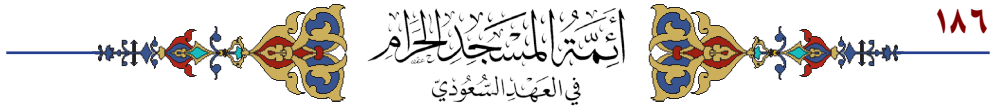 ١٨٦
أئمة المسجد الحرام
في العهد السعودي